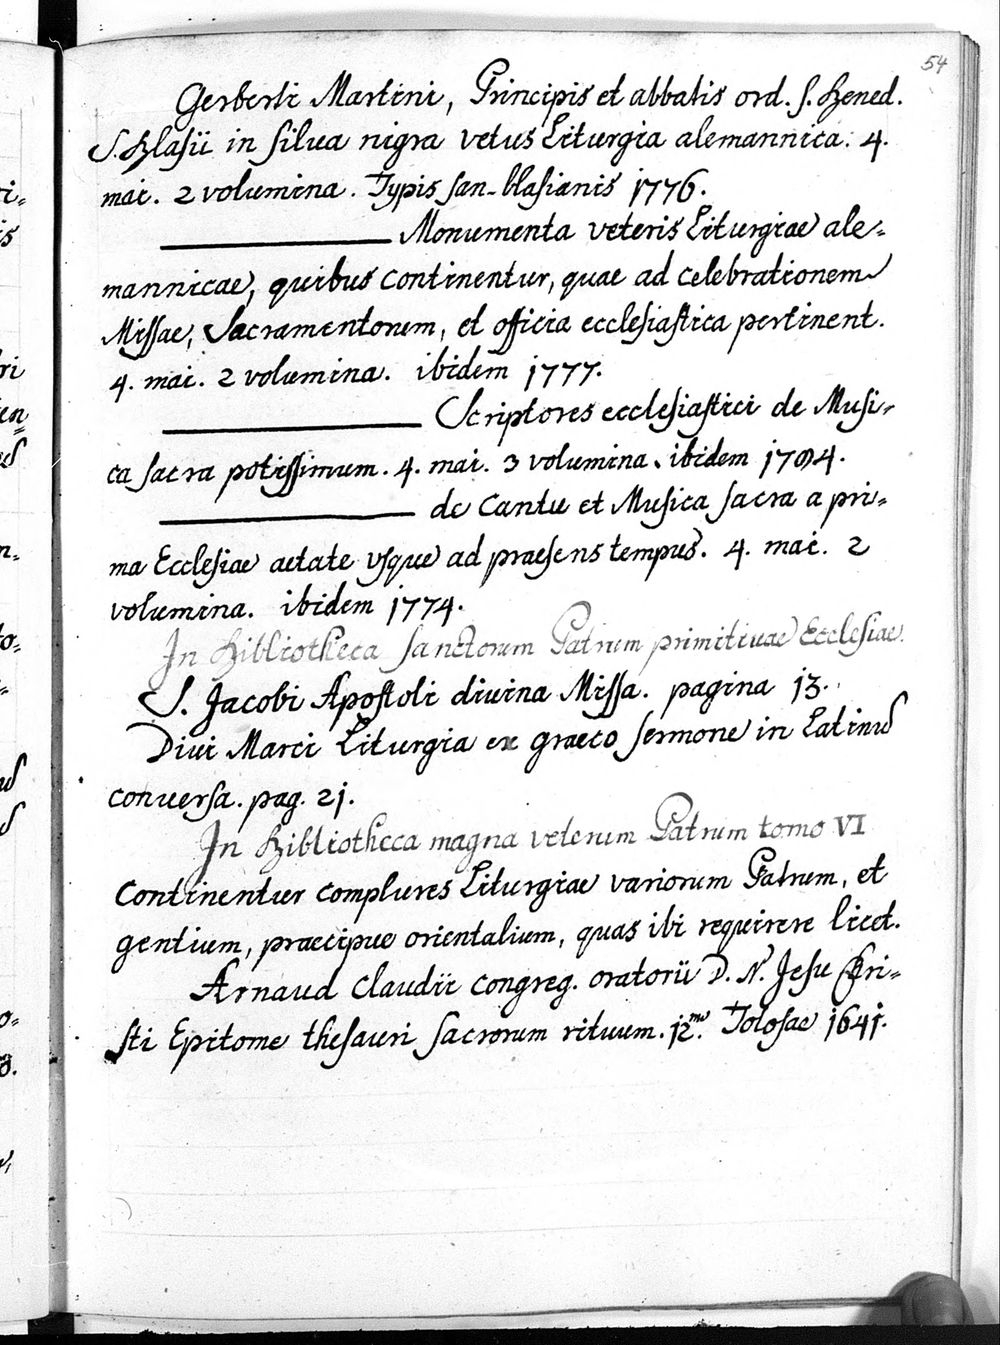 54
Gerberti Martini, Principis et abbatis ord. S. Bened.
S. Blasii in silva nigra vetus Liturgia alemannica. 4.
mai. 2 volumina. Typis san-blasianis 1776.
Monumenta veteris Liturgiae ale-
mannicae, quibus continentur, quae ad celebrationem
Missae, Sacramentorum, et officia ecclesiastica pertinent.
4. mai. 2 volumina. ibidem 1777.
Scriptores ecclesiastici de Musi-
ca sacra potissimum. 4. mai. 3 volumina. ibidem
de Cantu et Musica sacra a pri-
ma Ecclesiae aetate usque ad praesens tempus. 4. mai. 2
volumina. ibidem 1774.
In Bibliotheca sanctorum Patrum primitivae Ecclesiae.
S. Jacobi Apostoli divina Missa. pagina 13.
Divi Marci Liturgia ex graeco sermone in Latinū
conversa. pag. 21.
In Bibliotheca magna veterum Patrum tomo VI
continentur complures Liturgiae variorum Patrum, et
gentium, praecipue orientalium, quas ibi requirere licet.
Arnaud Claudii congreg. oratorii D. N. Jesu Chri-
sti Epitome thesauri sacrorum rituum. 12.mo Tolosae 1641.